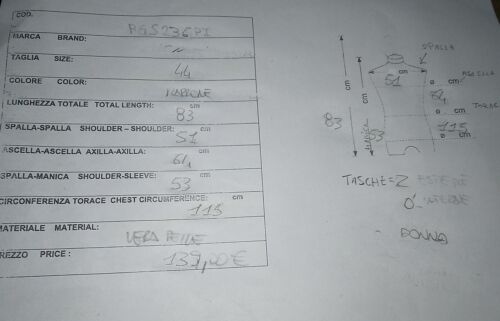 COD. RGS236PI
MARCA BRAND:
TAGLIA SIZE: 44
COLORE COLOR: MARRONE
LUNGHEZZA TOTALE TOTAL LENGTH: 83 cm
SPALLA-SPALLA SHOULDER-SHOULDER: 51 cm
ASCELLA-ASCELLA AXILLA-AXILLA: 61 cm
SPALLA-MANICA SHOULDER-SLEEVE: 53 cm
CIRCONFERENZA TORACE CHEST CIRCUMFERENCE: 115 cm
MATERIALE MATERIAL: VERA PELLE
PREZZO PRICE: 139,00€
SPALLA
cm 51 cm
ASCELLA
cm 61
TORACE
83 cm 53 cm 115
manica
TASCHE=2 ESTERNE
0 INTERNE
- DONNA